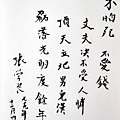 不怕死 不愛錢
丈夫决不受人憐
頂天立地男兒漢
磊落光明度餘年
張學良